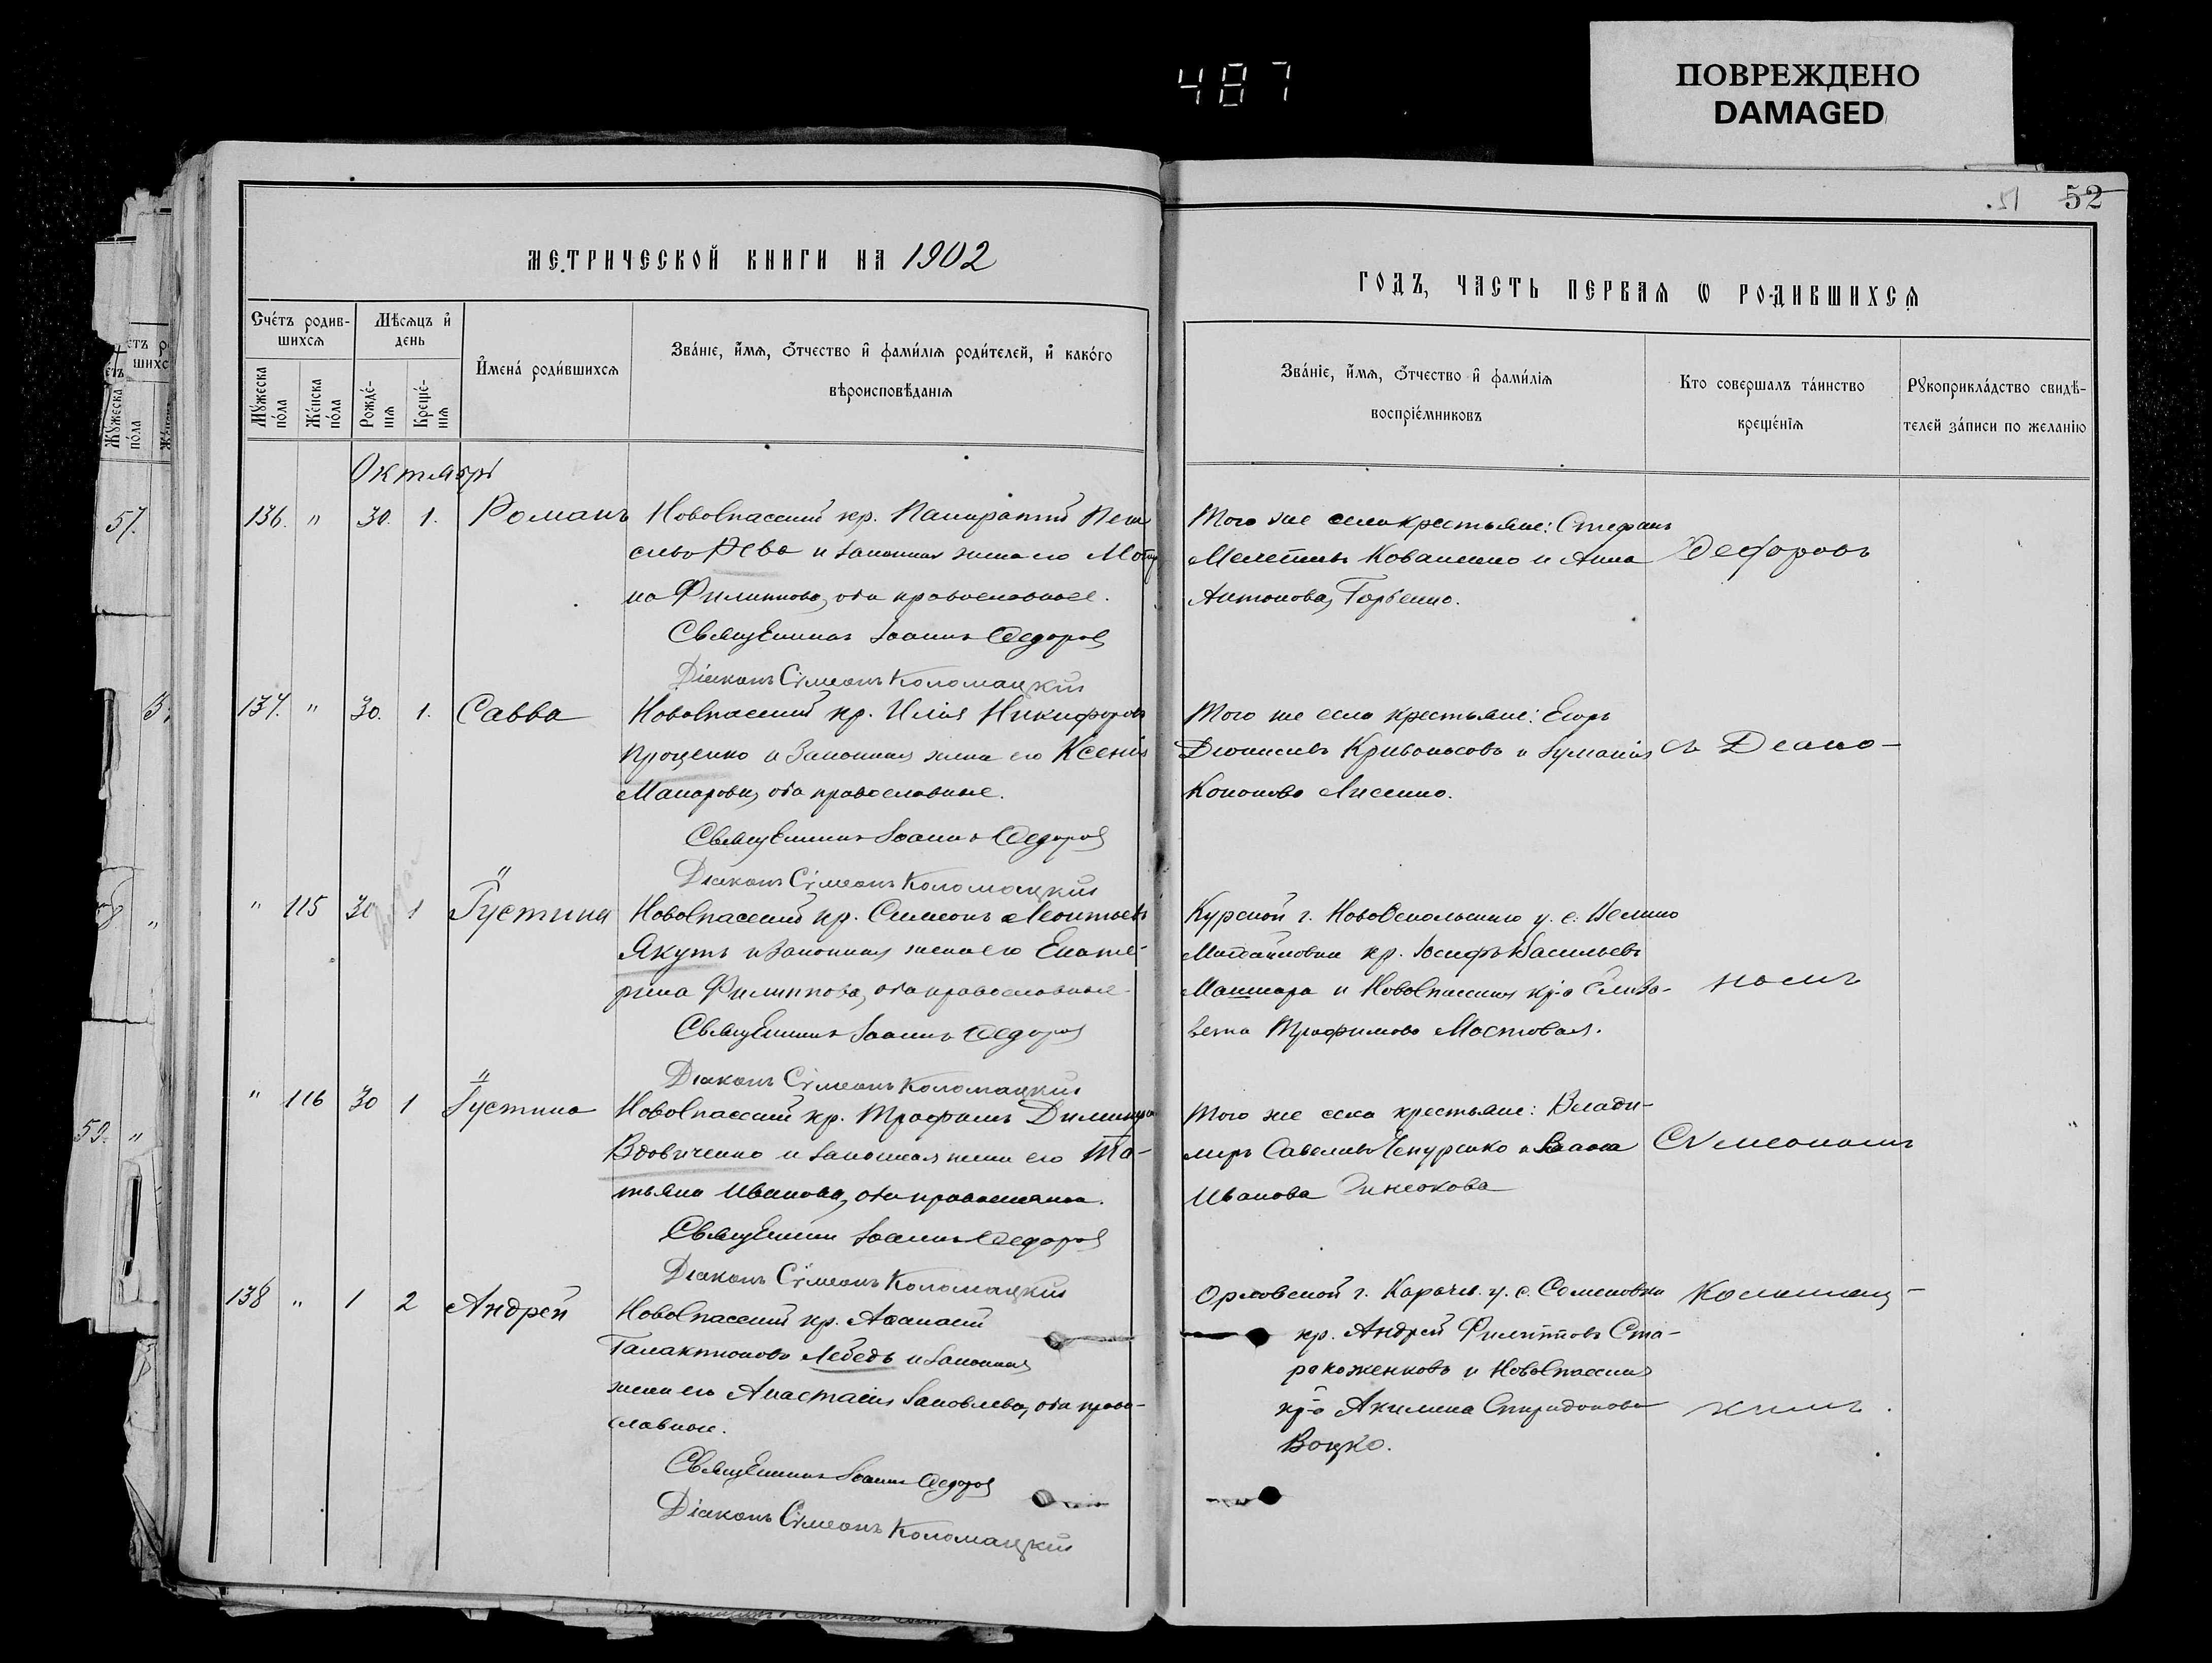 487
ПОВРЕЖДЕНО
DAMAGED
52
МЕТРИЧЕСКОЙ КНИГИ НА 1902
ГОДЪ, ЧАСТЬ ПЕРВАѦ Ѡ РОДИВШИХСѦ
Сче́тъ родив-
шихсѧ
Мѣсѧцъ и҆
день
Мꙋ́жеска
по́ла
Же́нска
по́ла
Рожде́-
нїѧ
Креще́-
нїѧ
И҆мена́ роди́вшихсѧ
Зва́нїе, и҆́мѧ, ѻ҆́тчество и҆ фами́лїѧ роди́телей, и҆ како́го
вѣроисповѣ́данїѧ
Зва́нїе, и҆́мѧ, ѻ҆́тчество и҆ фами́лїѧ
воспрїе́мниковъ
Кто совершалъ та́инство
креще́нїѧ
Рꙋкоприкла́дство свидѣ́-
телей за́писи по жела́нїю
Октябрь
136. " 30. 1. Романъ
Новоспасский кр. Панкратий
Рева и законная жена его
на Филиппова, оба православные.
Священникъ Іоаннъ Ѳедоровъ
Діаконъ Сѵмеонъ Коломацкій
Того же села крестьяне: Стефанъ
Мелетиевъ Коваленко и Анна
Антонова Горбенко.
Ѳедоровъ
137. " 30. 1. Савва
Новоспасский кр. Илія Никифоровъ
Проценко и законная жена его Ксенія
Макарова, оба православные.
Священникъ Іоаннъ Ѳедоровъ
Діаконъ Сѵмеонъ Коломацкій
Того же села крестьяне: Егоръ
Дионисиевъ Кривоносовъ и
Кононова Лисенко.
съ Діако-
" 115 30 1 Іустина
Новоспасский кр. Симеонъ Леонтьевъ
Якутъ и законная жена его Екате-
рина Филиппова, оба православные.
Священникъ Іоаннъ Ѳедоровъ
Діаконъ Сѵмеонъ Коломацкій
Курской г. Новооскольскаго у. с.
кр. Іосифъ Васильевъ
и Новоспасская кр-а Елиза-
вета Трофимова Мостовая.
номъ
" 116 30 1 Іустина
Новоспасский кр. Трофимъ
Вдовиченко и законная жена его Та-
тьяна Иванова, оба православные.
Священникъ Іоаннъ Ѳедоровъ
Діаконъ Сѵмеонъ Коломацкій
Того же села крестьяне: Влади-
миръ Савелиевъ Чепурко и
Иванова
Сѵмеономъ
138 " 1 2 Андрей
Новоспасский кр. Аѳанасий
Галактионовъ Лебедь и законная
жена его Анастасія Іаковлева, оба право-
славные.
Священникъ Іоаннъ Ѳедоровъ
Діаконъ Сѵмеонъ Коломацкій
Орловской г. Карачев. у. с. Семеновки
кр. Андрей Филипповъ Ста-
рокоженковъ и Новоспасская
кр-а Акилина Спиридонова
Воцко.
Коломац-
кимъ.